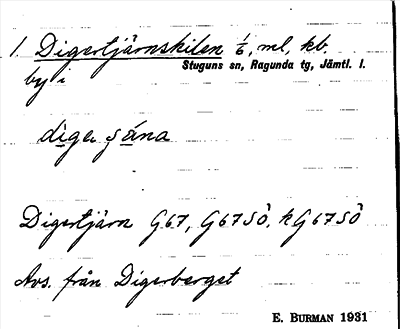 1. Digertjärnskilen 1/6, ml, kb.
Stuguns sn, Ragunda tg, Jämtl. l.
by i
Digertjärn G67, G67SÖ, kG67SÖ
Avs. från Digerberget
E. BURMAN 1931